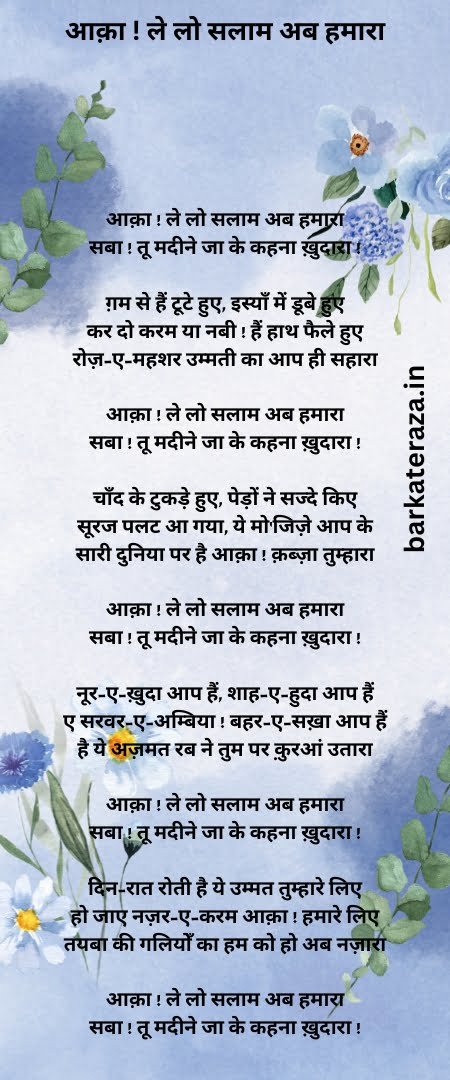 आक़ा ! ले लो सलाम अब हमारा
आक़ा ! ले लो सलाम अब हमारा
सबा ! तू मदीने जा के कहना ख़ुदारा !
ग़म से हैं टूटे हुए, इस्याँ में डूबे हुए
कर दो करम या नबी ! हैं हाथ फैले हुए
रोज़-ए-महशर उम्मती का आप ही सहारा
आक़ा ! ले लो सलाम अब हमारा
सबा ! तू मदीने जा के कहना ख़ुदारा !
चाँद के टुकड़े हुए, पेड़ों ने सज्दे किए
सूरज पलट आ गया, ये मो'जिज़े आप के
सारी दुनिया पर है आक़ा ! क़ब्ज़ा तुम्हारा
आक़ा ! ले लो सलाम अब हमारा
सबा ! तू मदीने जा के कहना ख़ुदारा !
नूर-ए-ख़ुदा आप हैं, शाह-ए-हुदा आप हैं
ए सरवर-ए-अम्बिया ! बहर-ए-सख़ा आप हैं
है ये अज़मत रब ने तुम पर क़ुरआं उतारा
आक़ा ! ले लो सलाम अब हमारा
सबा ! तू मदीने जा के कहना ख़ुदारा !
दिन-रात रोती है ये उम्मत तुम्हारे लिए
हो जाए नज़र-ए-करम आक़ा ! हमारे लिए
तयबा की गलियोँ का हम को हो अब नज़ारा
आक़ा ! ले लो सलाम अब हमारा
सबा ! तू मदीने जा के कहना ख़ुदारा !
barkateraza.in